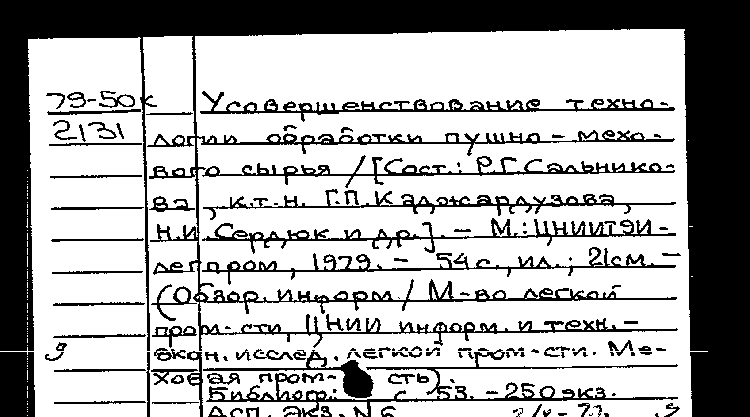 79-50к Усовершенствование техно-
2131 логии обработки пушно-мехо-
вого сырья / [Сост.: Р.Г. Сальнико-
ва, к.т.н. Г.П. Каджардузова,
Н.И. Сердюк и др.]. - М.: ЦНИИТЭИ-
легпром, 1979. - 54 с., ил.; 21 см. -
(Обзор. информ / М-во легкой
пром-сти, ЦНИИ информ. и техн.-
9 экон. исслед. легкой пром-сти. Ме-
ховая пром-сть).
Библиогр.: с 53. - 250 экз.
Асп. экз. №6